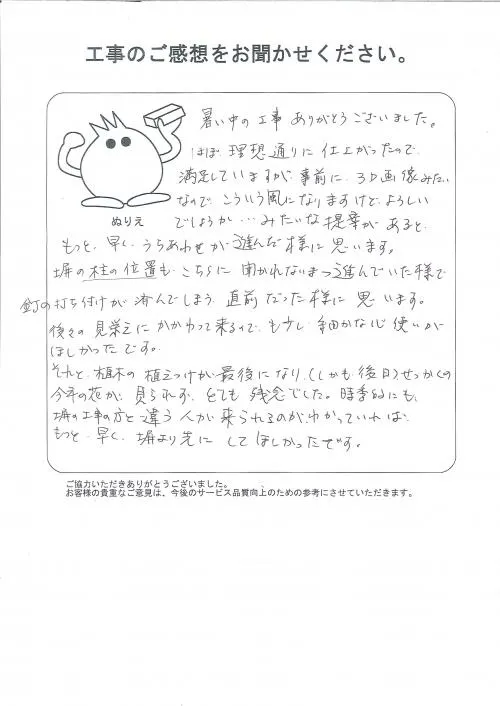 工事のご感想をお聞かせください。
暑い中の工事ありがとうございました。
ほぼ理想通りに仕上がったので
満足していますが、事前に3D画像みたい
なので、こういう風になりますけど、よろしい
でしょうか…みたいな提案があると、
ぬりえ
もっと、早くうちあわせが進んだ様に思います。
塀の柱の位置も、こちらに聞かれないまま進んでいた様で
釘の打ち付けが済んでしまう直前だった様に思います。
後々の見栄えにかかわって来るので、もう少し細かな心使いが
ほしかったです。
それと、植木の植えつけが最後になり、(しかも後日)せっかくの
今年の花が見られず、とても残念でした。時季的にも、
塀の工事の方と違う人が来られるのがわかっていれば、
もっと早く、塀より先にしてほしかったです。
ご協力いただきありがとうございました。
お客様の貴重なご意見は、今後のサービス品質向上のための参考にさせていただきます。